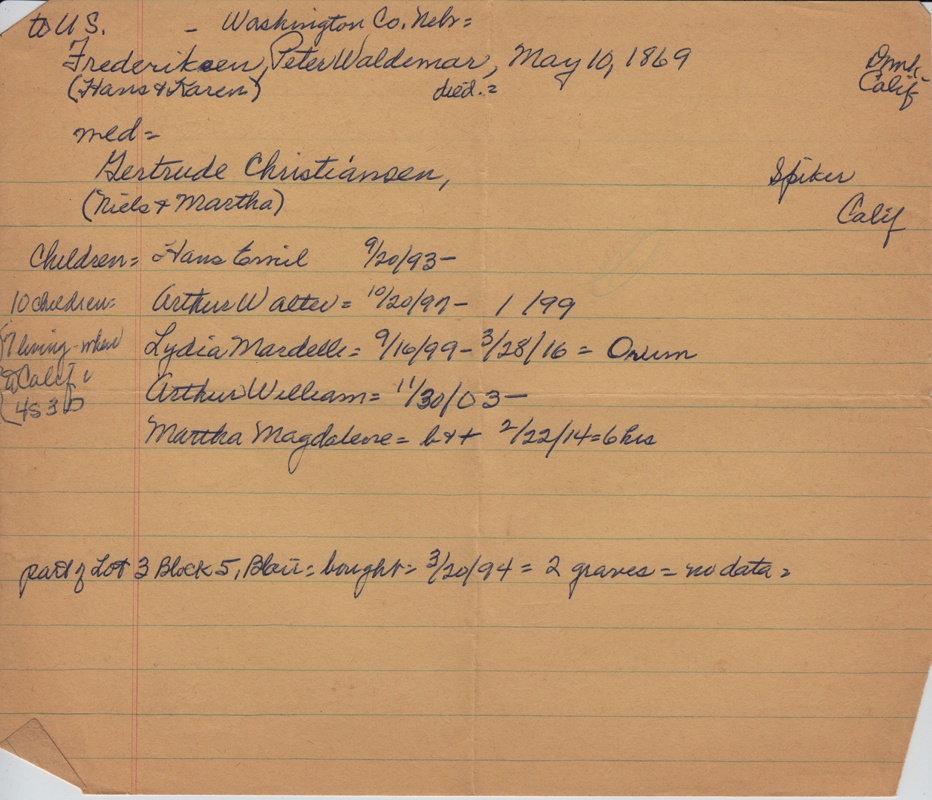 to U.S. - Washington Co. Nebr=
Frederiksen, Peter Waldemar, May 10, 1869 Dmk-
(Hans & Karen) died.= Calif
med=
Gertrude Christiansen, Spiker
(Niels & Martha) Calif
Children= Hans Emil 9/20/93-
10 children= Arthur Walter= 10/20/97- 1/99
7 living - when Lydia Mardelle= 9/16/99-3/28/16= Orum
to Calif Arthur William= 11/30/03-
4S 3D
Martha Magdalene= b+t 2/22/14=6hrs
part of Lot 3 Block 5, Blair= bought= 3/20/94= 2 graves= no data=